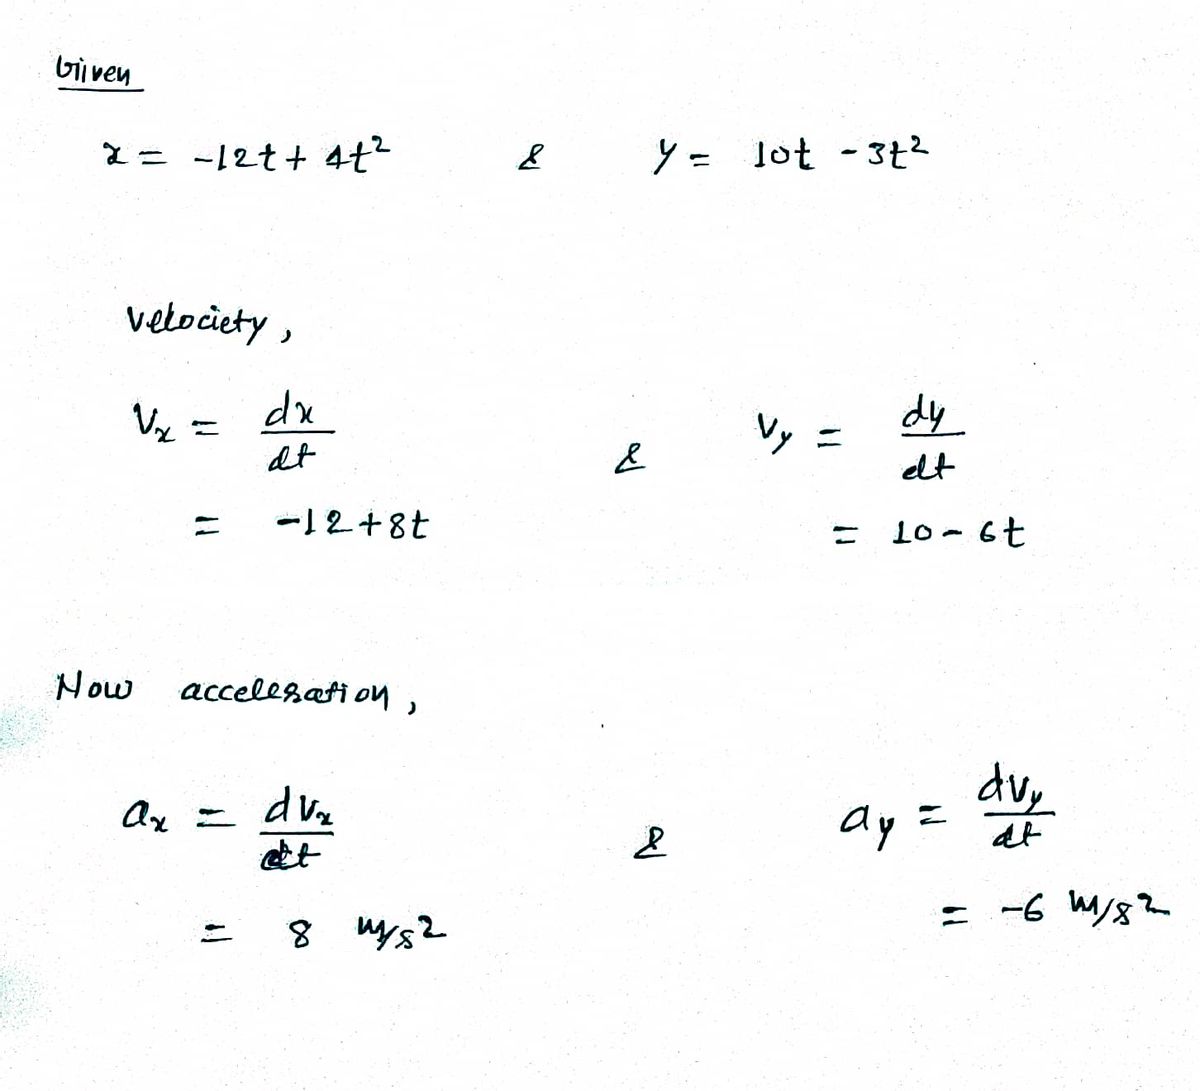 Given
x = -12t + 4t² & y = 10t - 3t²
velociety,
Vx = dx/dt & Vy = dy/dt
= -12+8t = 10-6t
Now acceleration,
ax = dvx/dt & ay = dvy/dt
= 8 m/s² = -6 m/s²